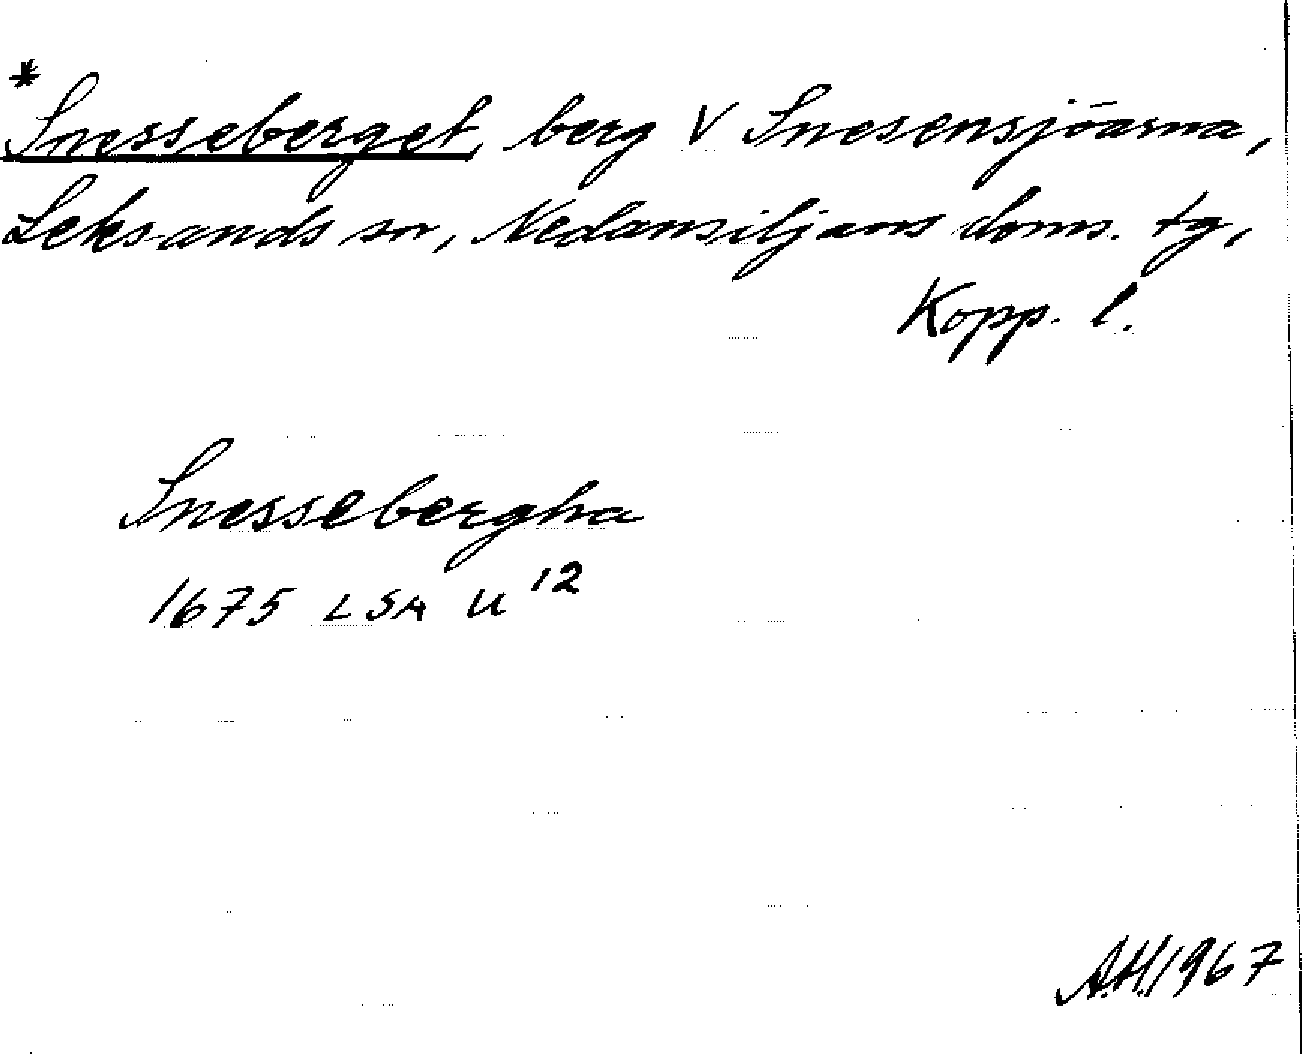 *
Snesseberget, berg V Snesensjöarna,
Leksands sn, Nedansiljans doms. tg,
Kopp. l.
Snessebergha
1675 LSA U 12
A.H. 1967